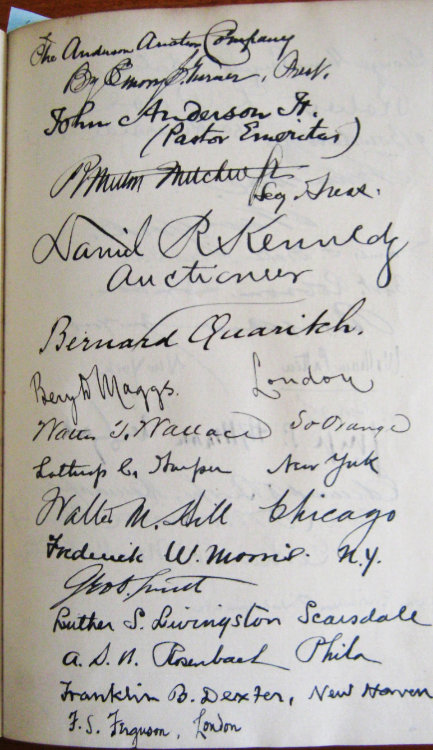 The Anderson Auction Company
By Emory S. Turner, Prest.
John Anderson Jr.
(Pastor Emeritus)
Secy. Treas.
Daniel R Kennedy
Auctioneer
Bernard Quaritch.
Benj D Maggs. London
Walter T. Wallace So Orange
Lathrop C. Harper New York
Walter M. Hill Chicago
Frederick W. Morris. N.Y.
Geo D. Smith
Luther S. Livingston Scarsdale
A. S. W. Rosenbach Phila
Franklin B. Dexter, New Haven
F. S. Ferguson, London